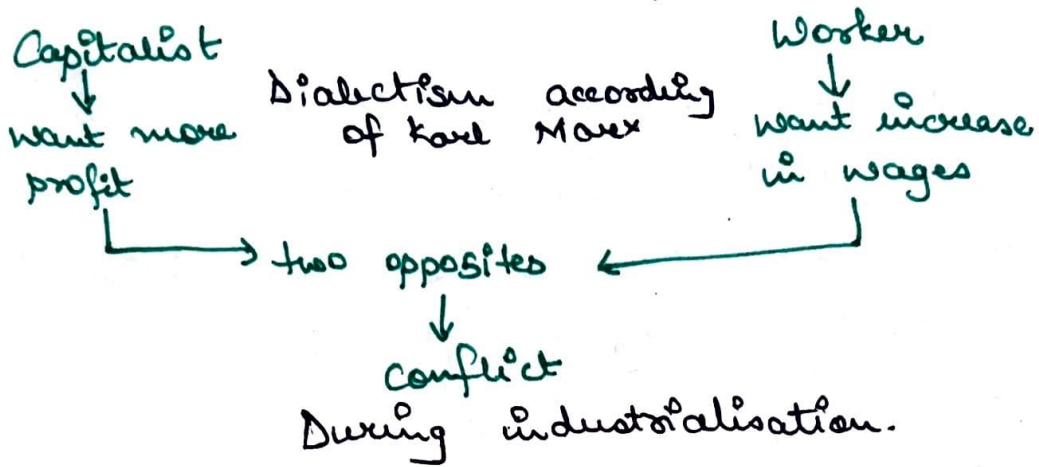 Capitalist
Worker
Dialectism according
of Karl Marx
want more
profit
want increase
in wages
two opposites
conflict
During industrialisation.